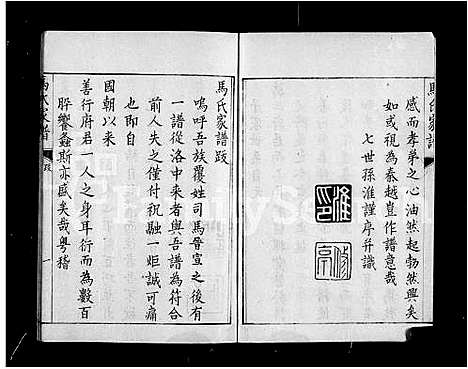 馬氏家譜
感而孝弟之心油然起勃然興矣
如或視為秦越豈作譜意哉
七世孫淮謹序幷識
馬氏家譜跋
嗚呼吾族覆姓司馬晉宣之後有
一譜從洛中来者與吾譜為符合
前人失之僅付祝融一炬誠可痛
也即自
國朝以来
善行府君一人之身耳衍而為數百
胙饗螽斯亦盛矣哉粵稽
馬氏家譜
跋
一